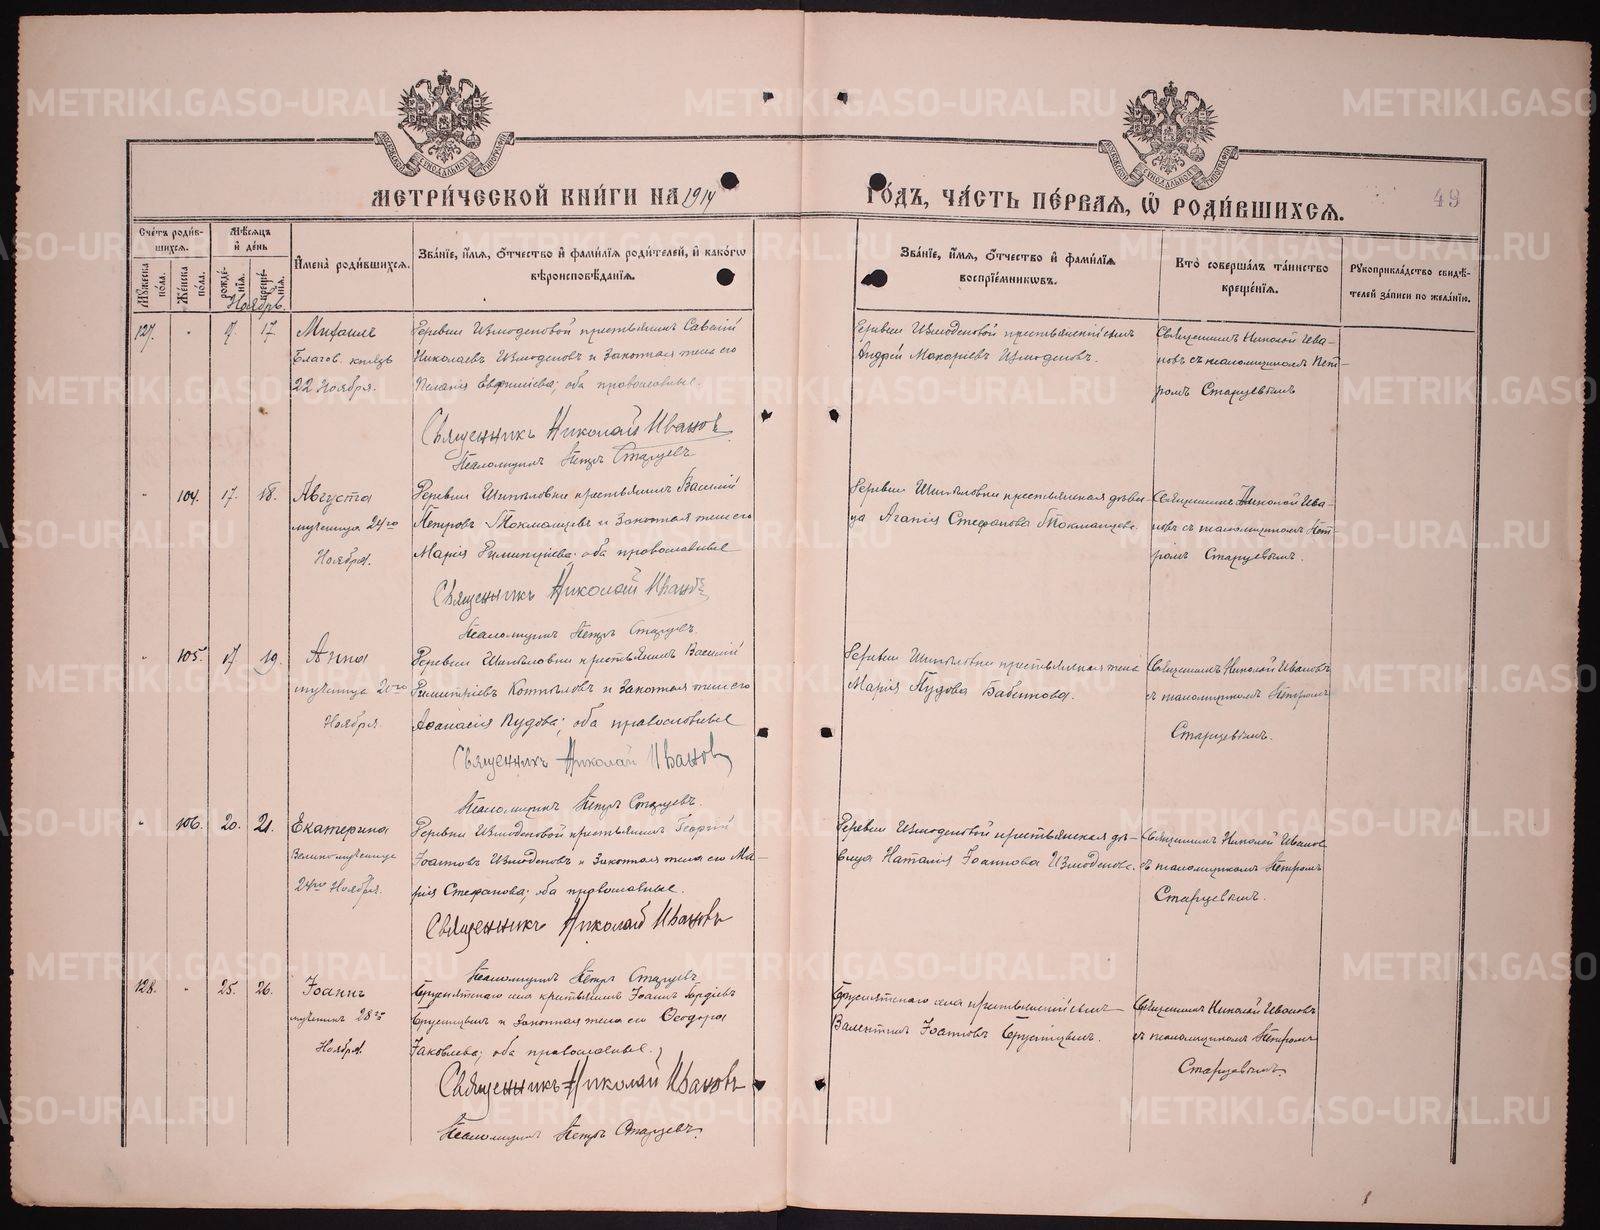 МЕТРИ́ЧЕСКОЙ КНИ́ГИ НА 1914
ГО́ДЪ, ЧА́СТЬ ПЕ́РВАЯ, Ѡ РОДИ́ВШИХСЯ.
49
Сче́тъ роди́в-
шихся.
Му́жеска по́ла.
Же́нска по́ла.
Мѣ́сяцъ
и҆ де́нь
рожде́нїя.
креще́нїя.
Ноябрь.
И҆мена̀ роди́вшихся.
Зва́нїе, и҆́мя, ѻ҆́тчество и҆ фами́лїя роди́телей, и҆ како́гѡ
вѣроисповѣ́данїя.
Зва́нїе, и҆́мя, ѻ҆́тчество и҆ фами́лїя
воспрїе́мникѡвъ.
Кто̀ соверша́лъ та́инство
креще́нїя.
Рꙋкоприкла́дство свидѣ́-
телей за́писи по жела́нїю.
127. " 9. 17
Михаилъ
Благов. князь
22 Ноября.
Деревни Измоденовой крестьянинъ Савватiй
Николаевъ Измоденовъ и законная жена его
Пелагiя Евфимiева; оба православные.
Священникъ Николай Ивановъ
Псаломщикъ Петръ Старцевъ
Деревни Измоденовой крестьянскiй сынъ
Андрей Макарiевъ Измоденовъ.
Священникъ Николай Ива-
новъ съ псаломщикомъ Пет-
ромъ Старцевымъ
" 104. 17. 18.
Августа
мученица 24го
Ноября.
Деревни Шипѣловки крестьянинъ Василiй
Петровъ Токманцевъ и законная жена его
Марiя Димитрiева; оба православные
Священникъ Николай Ивановъ
Псаломщикъ Петръ Старцевъ.
Деревни Шипѣловки крестьянская дѣви-
ца Агапiя Стефанова Токманцева.
Священникъ Николай Ива-
новъ съ псаломщикомъ Пет-
ромъ Старцевымъ.
" 105. 17 19.
Анна
мученица 20го
Ноября
Деревни Шипѣловки крестьянинъ Василiй
Димитрiевъ Котѣловъ и законная жена его
Аѳанасiя Пудова; оба православные
Священникъ Николай Ивановъ
Псаломщикъ Петръ Старцевъ.
Деревни Шипѣловки крестьянская жена
Марiя Пудова Бабинова.
Священникъ Николай Ивановъ
съ псаломщикомъ Петромъ
Старцевымъ.
" 106. 20. 21.
Екатерина
Великомученица
24го Ноября.
Деревни Измоденовой крестьянинъ Георгiй
Iоанновъ Измоденовъ и законная жена его Ма-
рiя Стефанова; оба православные.
Священникъ Николай Ивановъ
Псаломщикъ Петръ Старцевъ
Деревни Измоденовой крестьянская дѣ-
вица Наталiя Iоаннова Измоденова.
Священникъ Николай Ивановъ
съ псаломщикомъ Петромъ
Старцевымъ.
128. " 25. 26.
Iоаннъ
мученикъ 28го
Ноября.
Брусянскаго села крестьянинъ Iоаннъ Гордiевъ
Брусницынъ и законная жена его Ѳеодора
Iаковлева; оба православные.
Священникъ Николай Ивановъ
Псаломщикъ Петръ Старцевъ.
Брусянскаго села крестьянскiй сынъ
Валентинъ Iоанновъ Брусницынъ.
Священникъ Николай Ивановъ
съ псаломщикомъ Петромъ
Старцевымъ.
METRIKI.GASO-URAL.RU